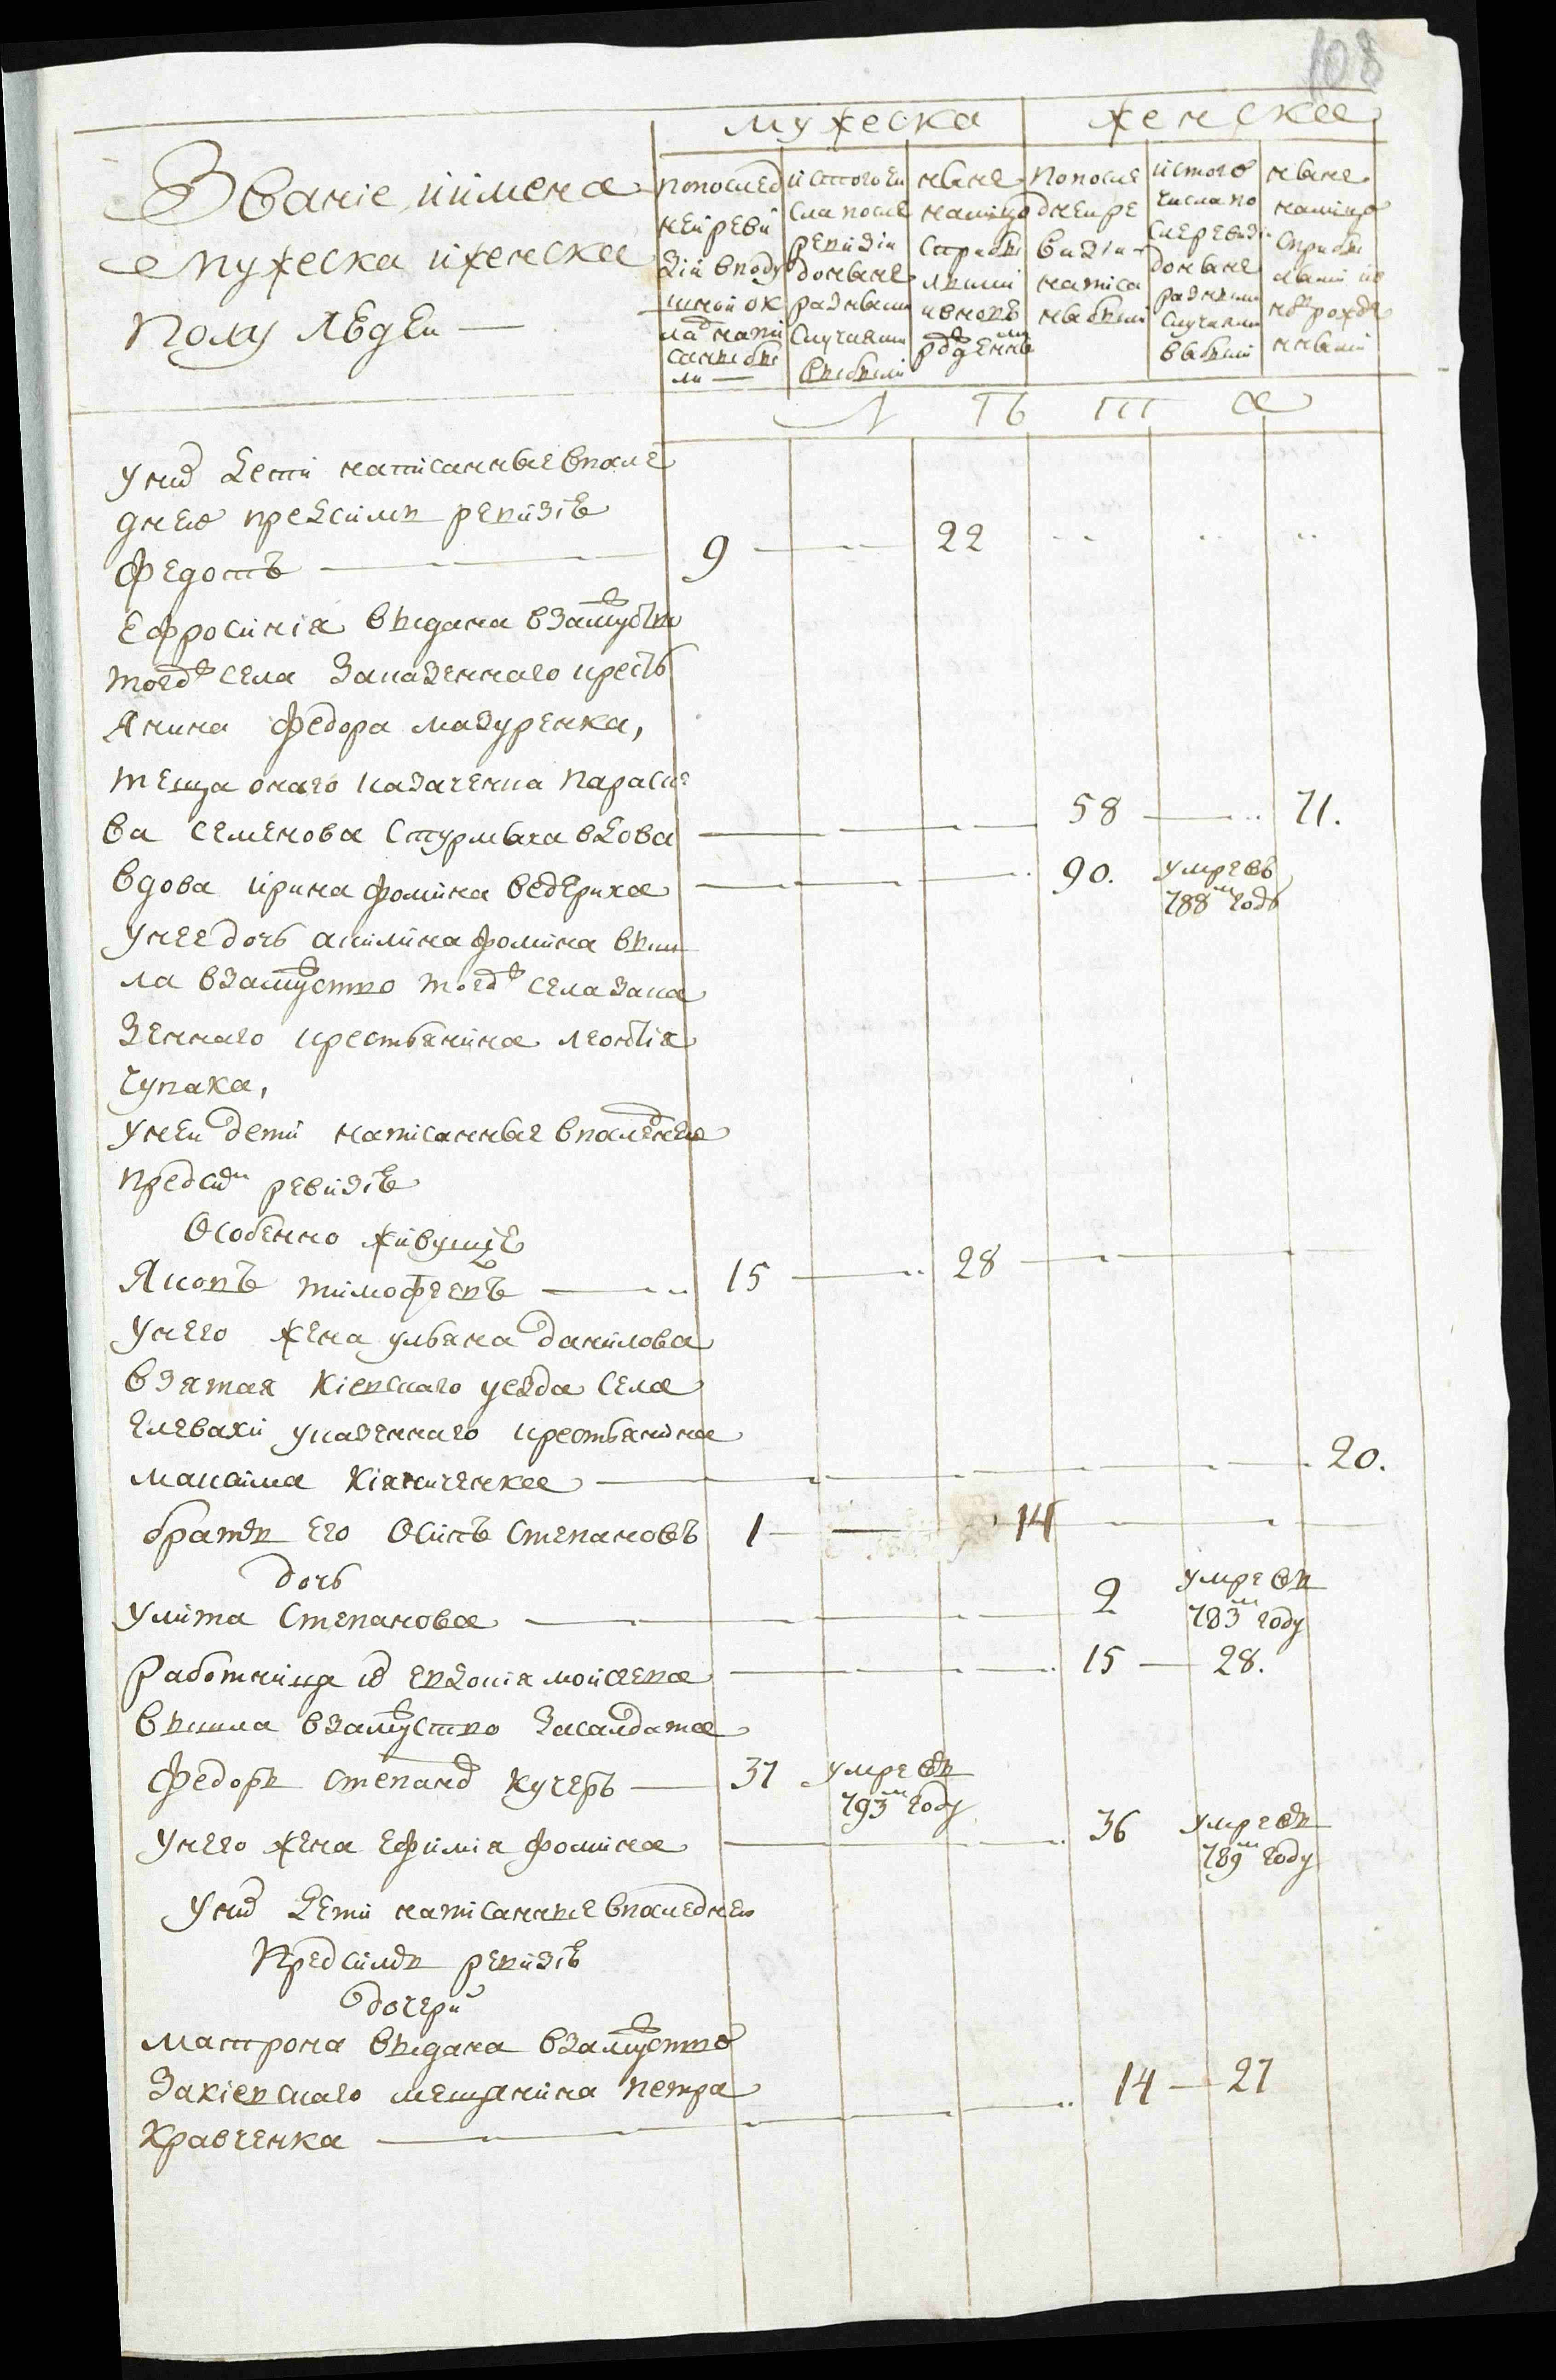 108
мужеска женска
Званіе иимена
мужеска иженска
полу людеи
попослед
ней реви
зіи вподу
шной ок
ладъ напи
санны бы
ли
истого чи
сла после
ревизіи
доныне
разными
случаями
выбыли
ныне
налицо
сприбы
лыми
ивновь
рожденными
попосле
дней ре
визіи
написа
ны были
истого
числа по
сле ревизіи
доныне
разными
случаями
выбыли
ныне
налицо
сприбы
лыми и
новорожде
нными
лѣта
униⷯ дети написанные впосле
днею предсимъ ревизіе
Федотъ 9 22
Ефросинія выдана взамуство
тогожъ села заказенного кресть
янина Федора мазуренка,
теща оного казаченка параске
ва семенова Стурмыха вдова 58 71.
вдова ирина фомина ведериха 90. умре въ
788м годѣ
унее дочь акилина фомина выш
ла взамуство тогожъ села зака
зенного крестьянина леонтія
чупака,
унеи дети написанные впоследнею
предсим ревизіе
Особенно живущіе
Яковъ тимофеевъ 15 28
Унего жена ульяна данилова
взятая кіевского уезда села
глевахи указенного крестьянина
макзима кіяниченка 20.
братъ его Осипъ степановъ 1 14
дочь
улита степанова 2 умре въ
783м году
работница ихъ евдокія мойсеева 15 28.
вышла взамуство засалдата
федоръ степановъ кучеръ 37 умре въ
793м году
унего жена ефимія фомина 36 умре въ
789м году
униⷯ дети написанные впоследнею
предсимъ ревизіе
дочери
матрона выдана взамуство
закіевского мещанина петра 14 27
Кравченка